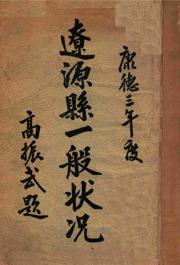 康德三年度
遼源縣一般狀況
高振武題